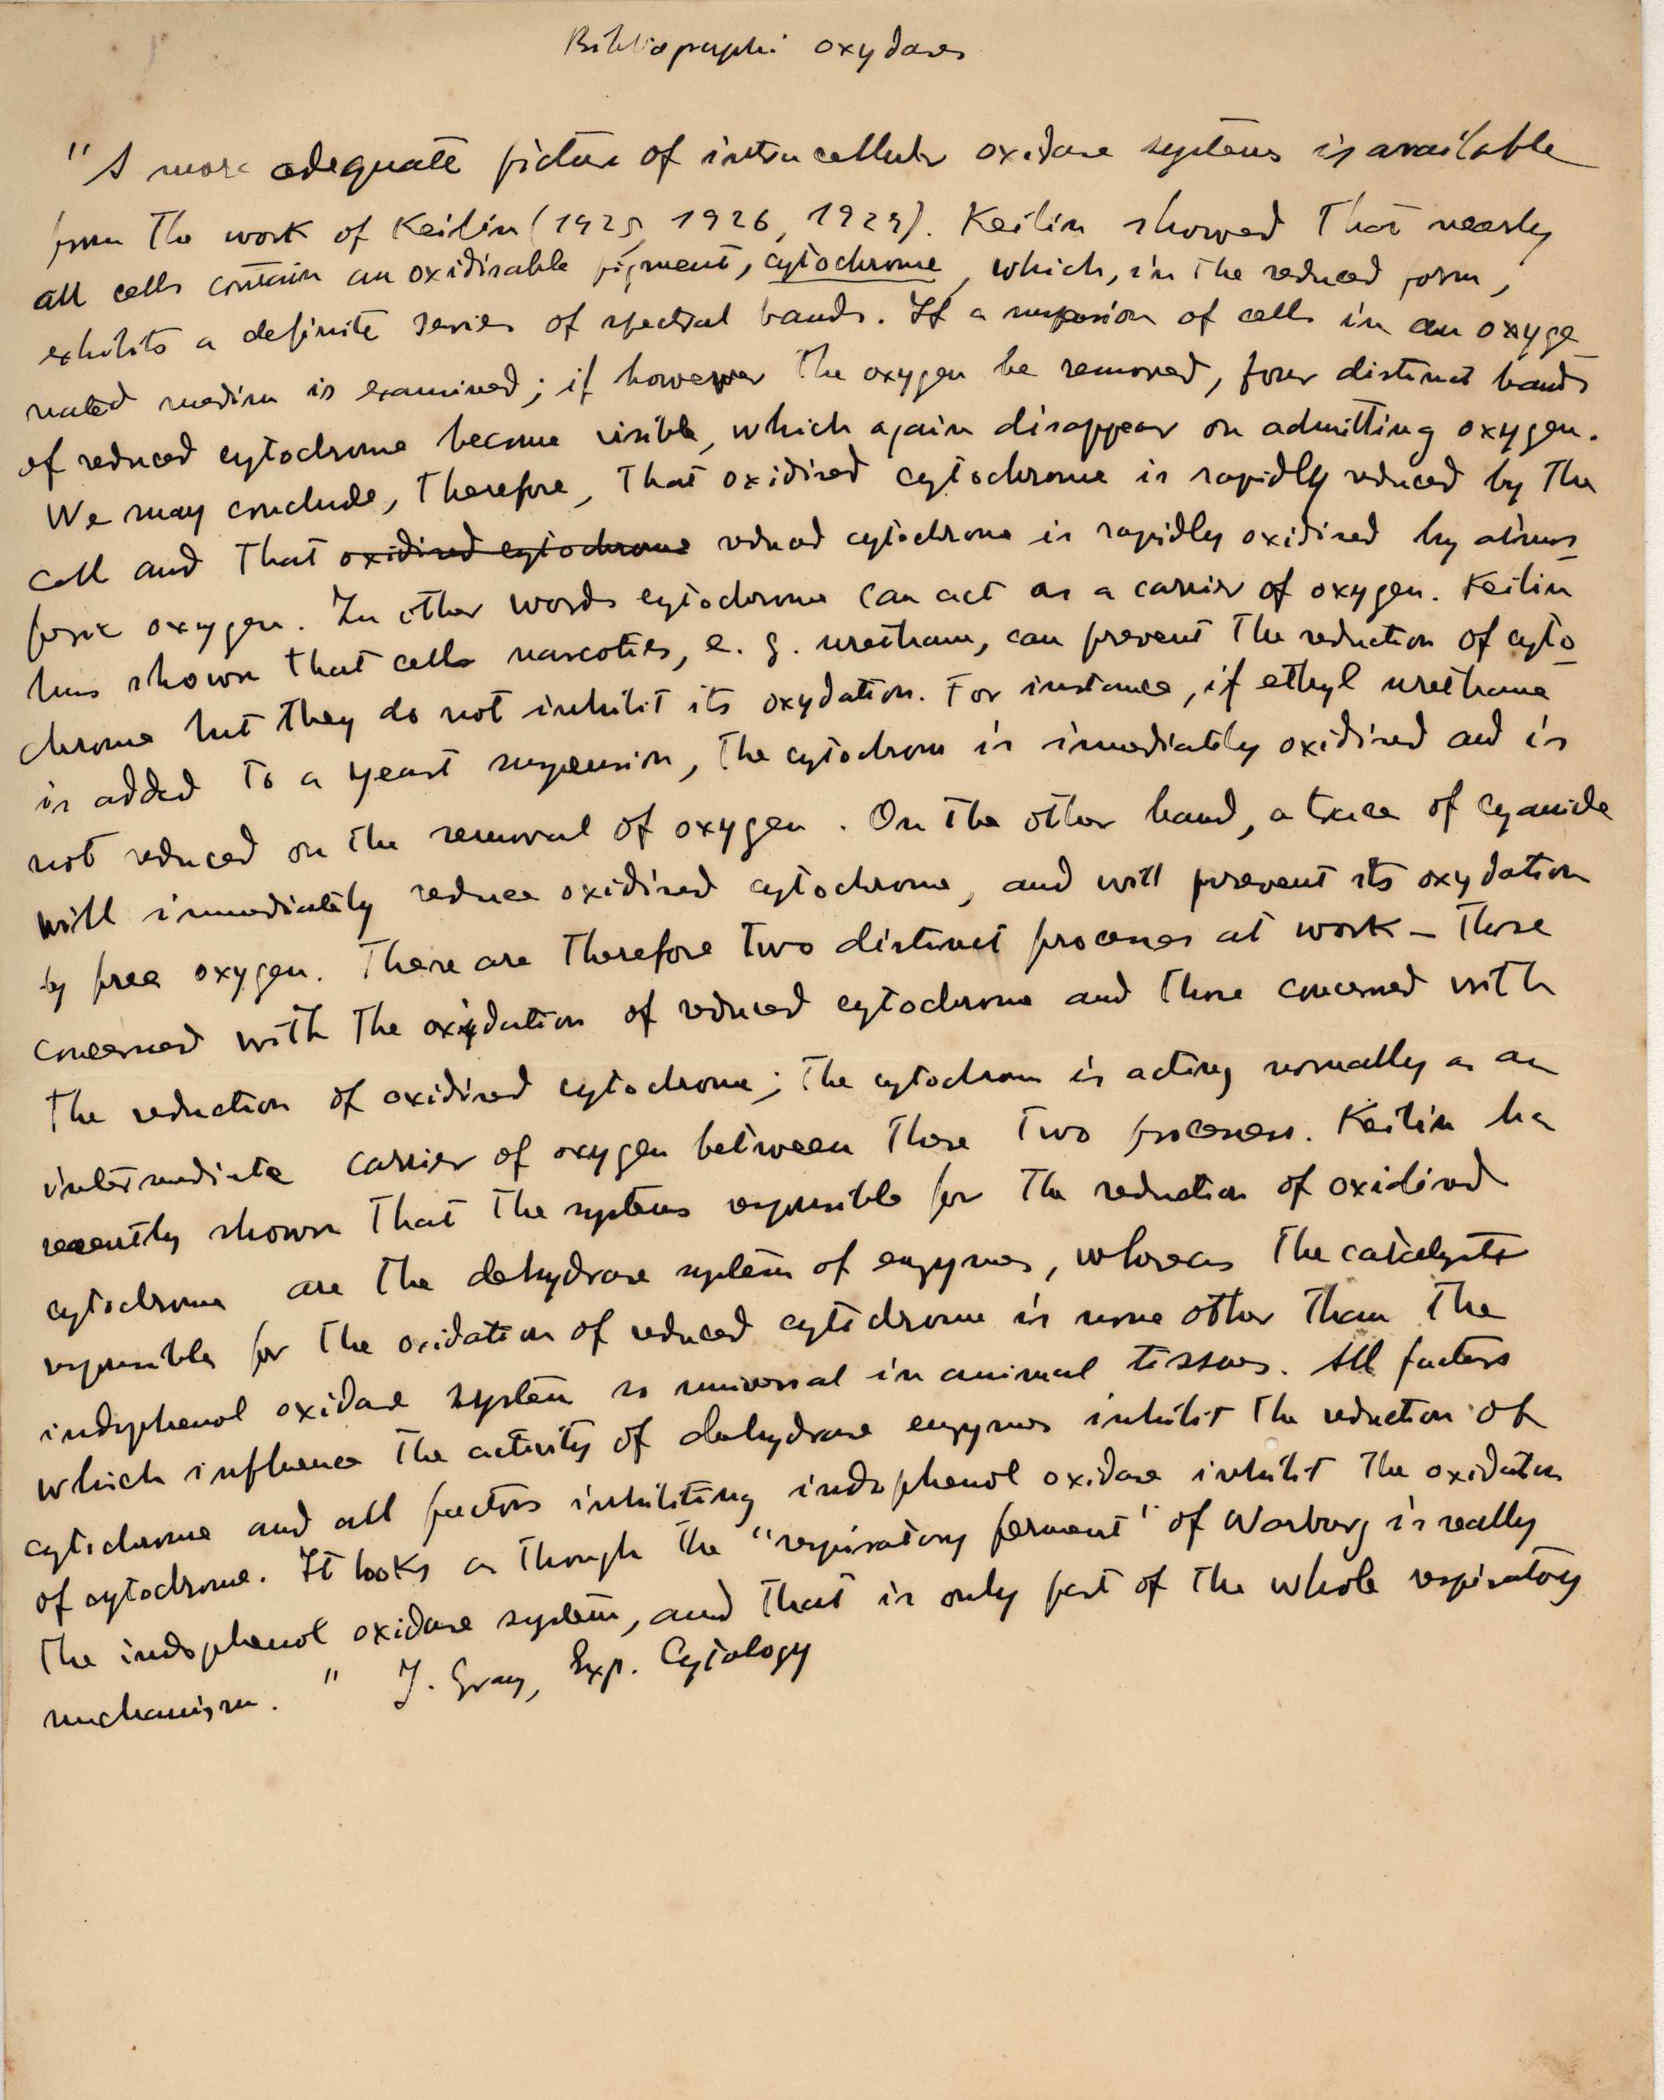 Bibliographi oxydases
"A more adequate picture of intracellular oxidase systems is available
from the work of Keilin (1925, 1926, 1929). Keilin showed that nearly
all cells contain an oxidisable pigment, cytochrome, which, in the reduced form,
exhibits a definite series of spectral bands. If a suspension of cells in an oxyge
nated medium is examined; if however the oxygen be removed, four distinct bands
of reduced cytochrome become visible, which again disappear on admitting oxygen.
We may conclude, therefore, that oxidised cytochrome is rapidly reduced by the
cell and that oxidised cytochrome reduced cytochrome is rapidly oxidised by atmos
feric oxygen. In other words cytochrome can act as a carrier of oxygen. Keilin
has shown that cells narcotics, e. g. urethane, can prevent the reduction of cyto
chrome but they do not inhibit its oxydation. For instance, if ethyl urethane
is added to a yeast suspension, the cytochrom is immediately oxidised and is
not reduced on the removal of oxygen. On the other hand, a trace of cyanide
will immediately reduce oxidised cytochrome, and will prevent its oxydation
by free oxygen. There are therefore two distinct processes at work - those
concerned with the oxydation of reduced cytochrome and those concerned with
the reduction of oxidised cytochrome; the cytochrom is acting normally as an
intermediate carrier of oxygen between these two processes. Keilin has
recently shown that the systems responsible for the reduction of oxidised
cytochrome are the dehydrase system of enzymes, whereas the catalysts
responsible for the oxidation of reduced cytochrome is none other than the
indophenol oxidase system so universal in animal tissues. All factors
which influence the activity of dehydrase enzymes inhibit the reduction of
cytochrome and all factors inhibiting indophenol oxidase inhibit the oxidation
of cytochrome. It looks as though the "respiratory ferment" of Warburg is really
the indophenol oxidase system, and that is only part of the whole respiratory
mechanism." J. Gray, Exp. Cytology